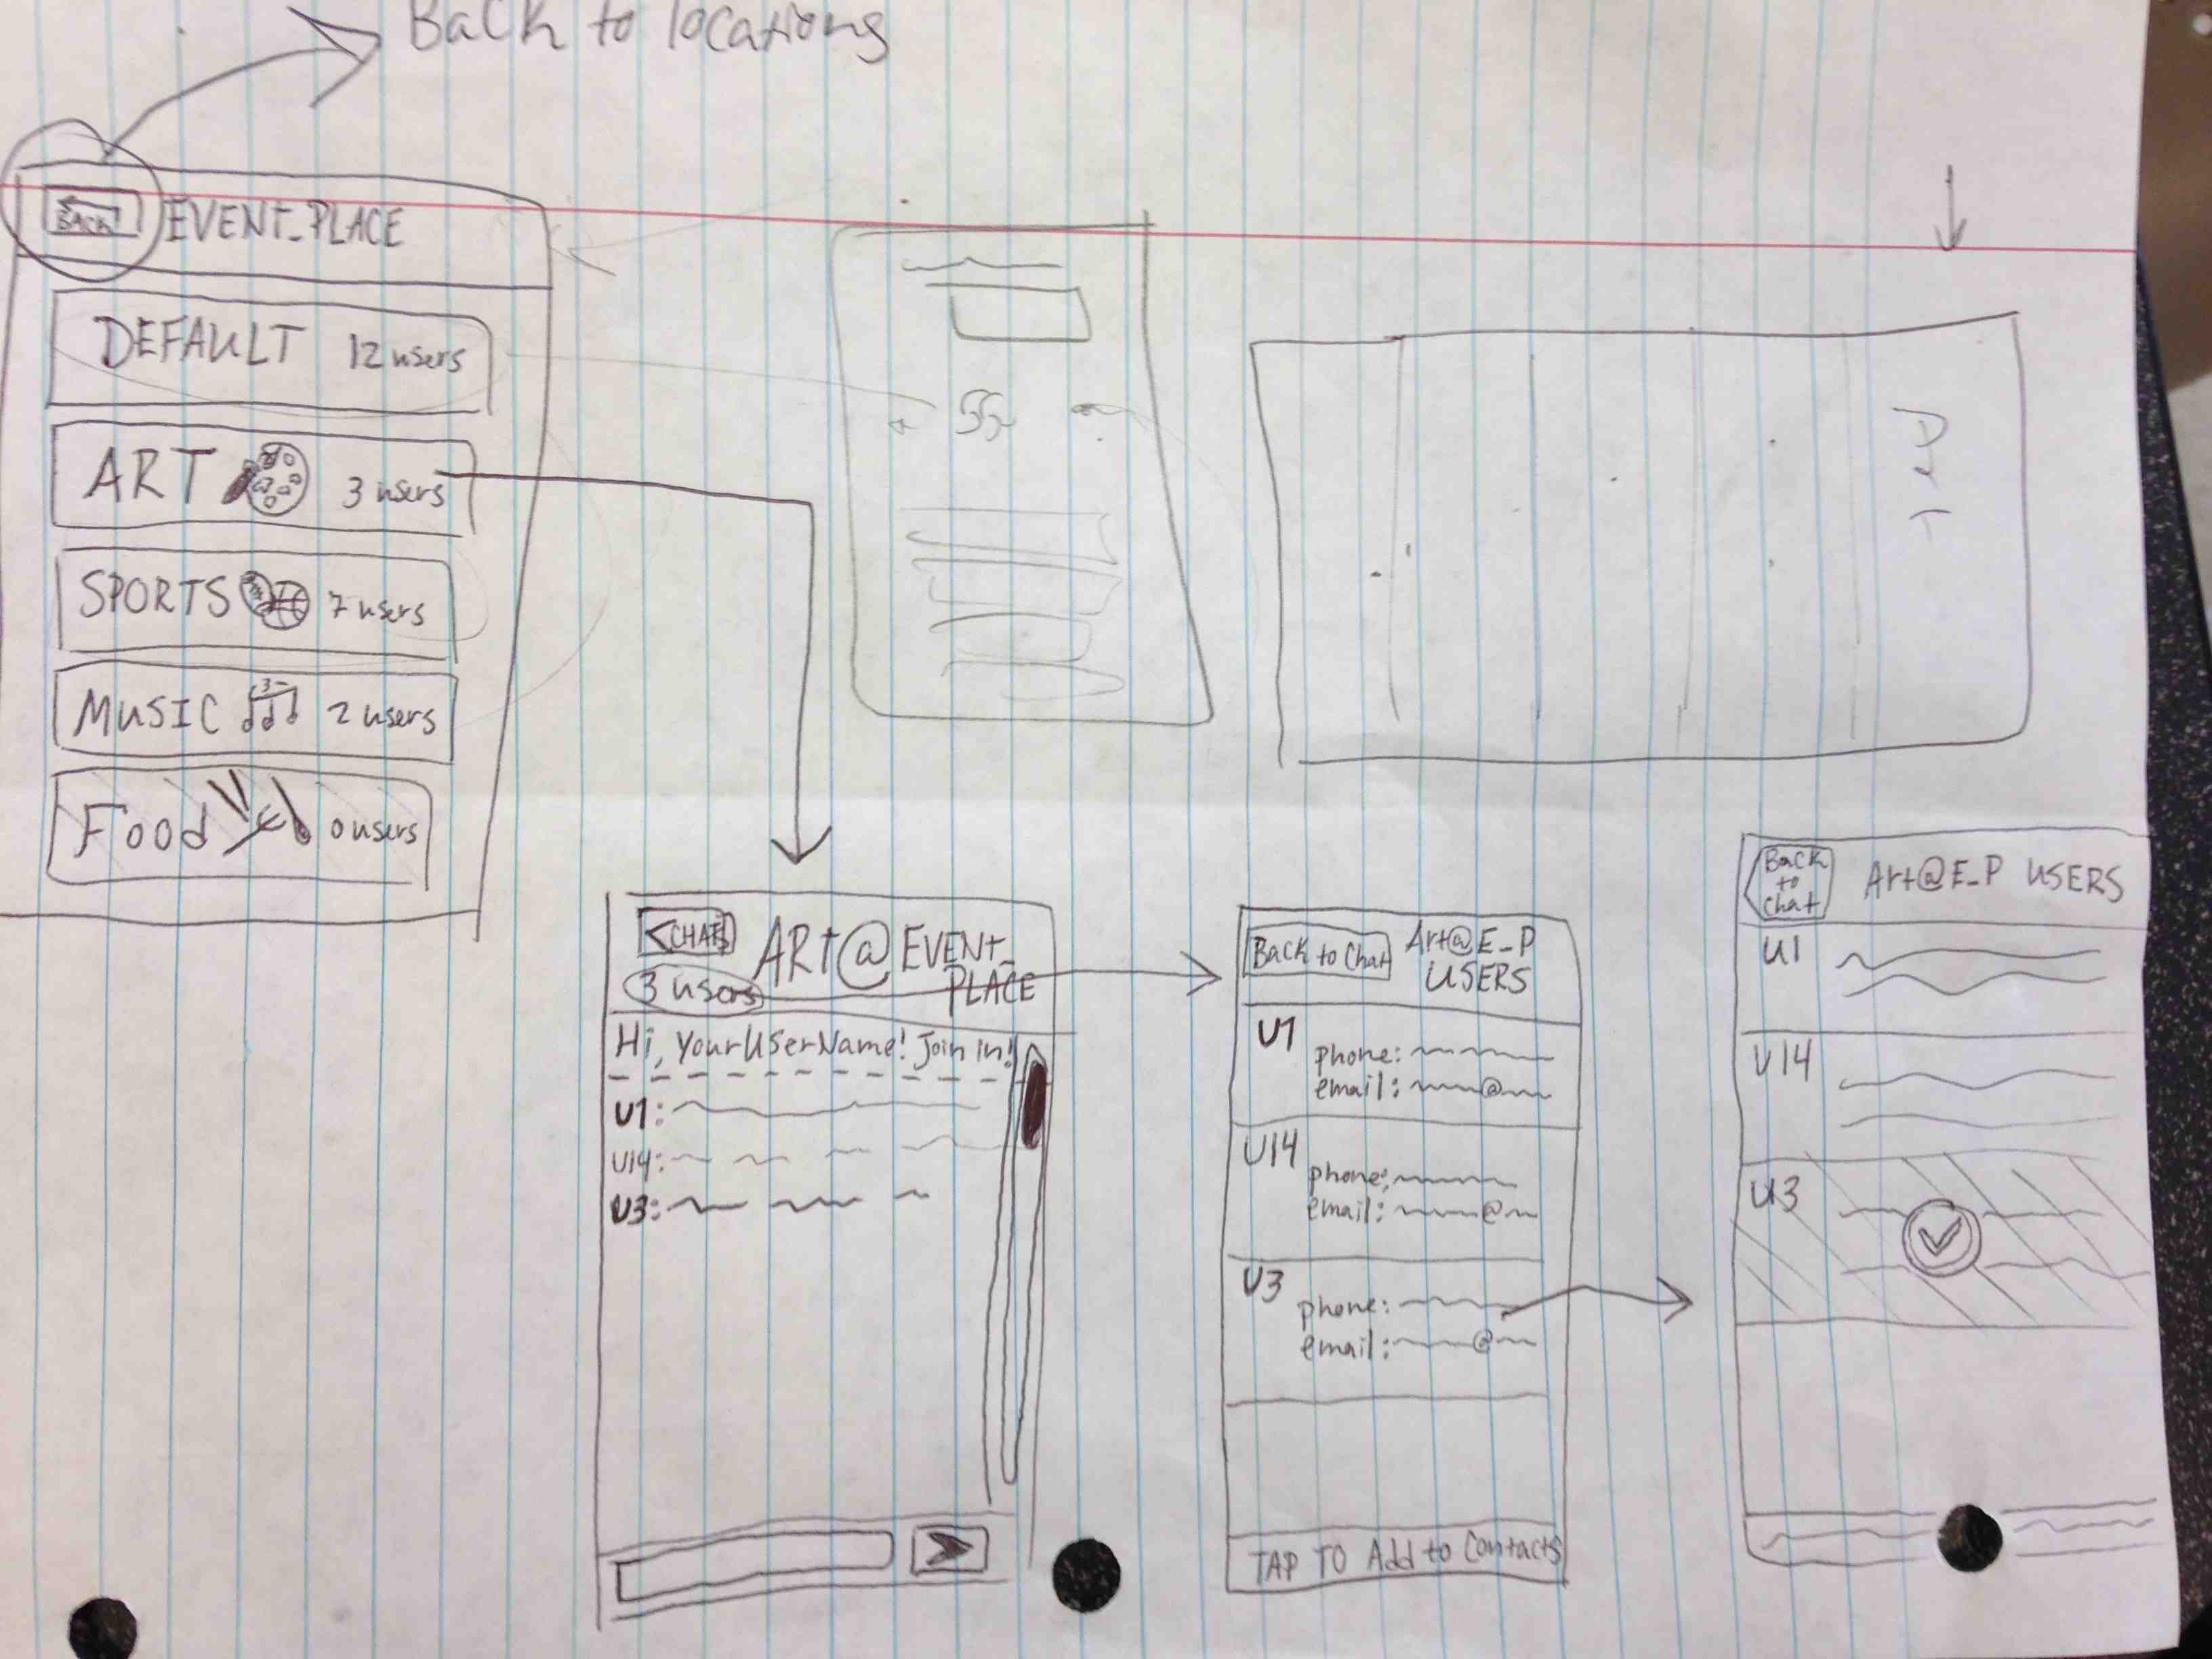 Back to locations
BACK
EVENT_PLACE
DEFAULT 12 users
ART 3 users
SPORTS 7 users
MUSIC 2 users
Food 0 users
<CHATS
ARt@EVENT_
PLACE
3 users
Hi, YourUserName! Join in!
U1:
U14:
U3:
Back to Chat
Art@E_P
USERS
U1
phone:
email: @
U14
phone:
email: @
U3
phone:
email: @
TAP TO Add to Contacts
Back
to
chat
Art@E_P USERS
U1
U14
U3